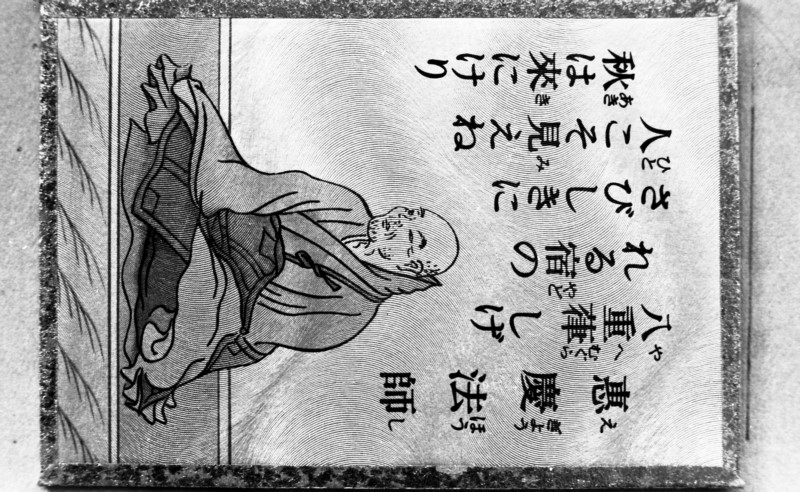 惠慶法師
え ぎよう ほう し
八重葎しげ
や へ むぐら
れる宿の
やど
さびしきに
人こそ見えね
ひと み
秋は來にけり
あき き